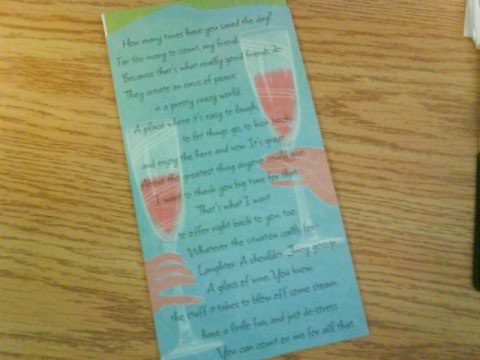 How many times have you saved the day?
Far too many to count, my friend
Because that's what really good friends do
They create an oasis of peace
in a pretty crazy world
A place where it's easy to laugh,
to let things go, to kick back
and enjoy the here and now. It's great
About the greatest thing anyone could give
I want to thank you big time for that
That's what I want
to offer right back to you, too.
Whatever the situation calls for
Laughter. A shoulder. Juicy gossip.
A glass of wine. You know,
the stuff it takes to blow off some steam,
have a little fun, and just de-stress
You can count on me for all that.